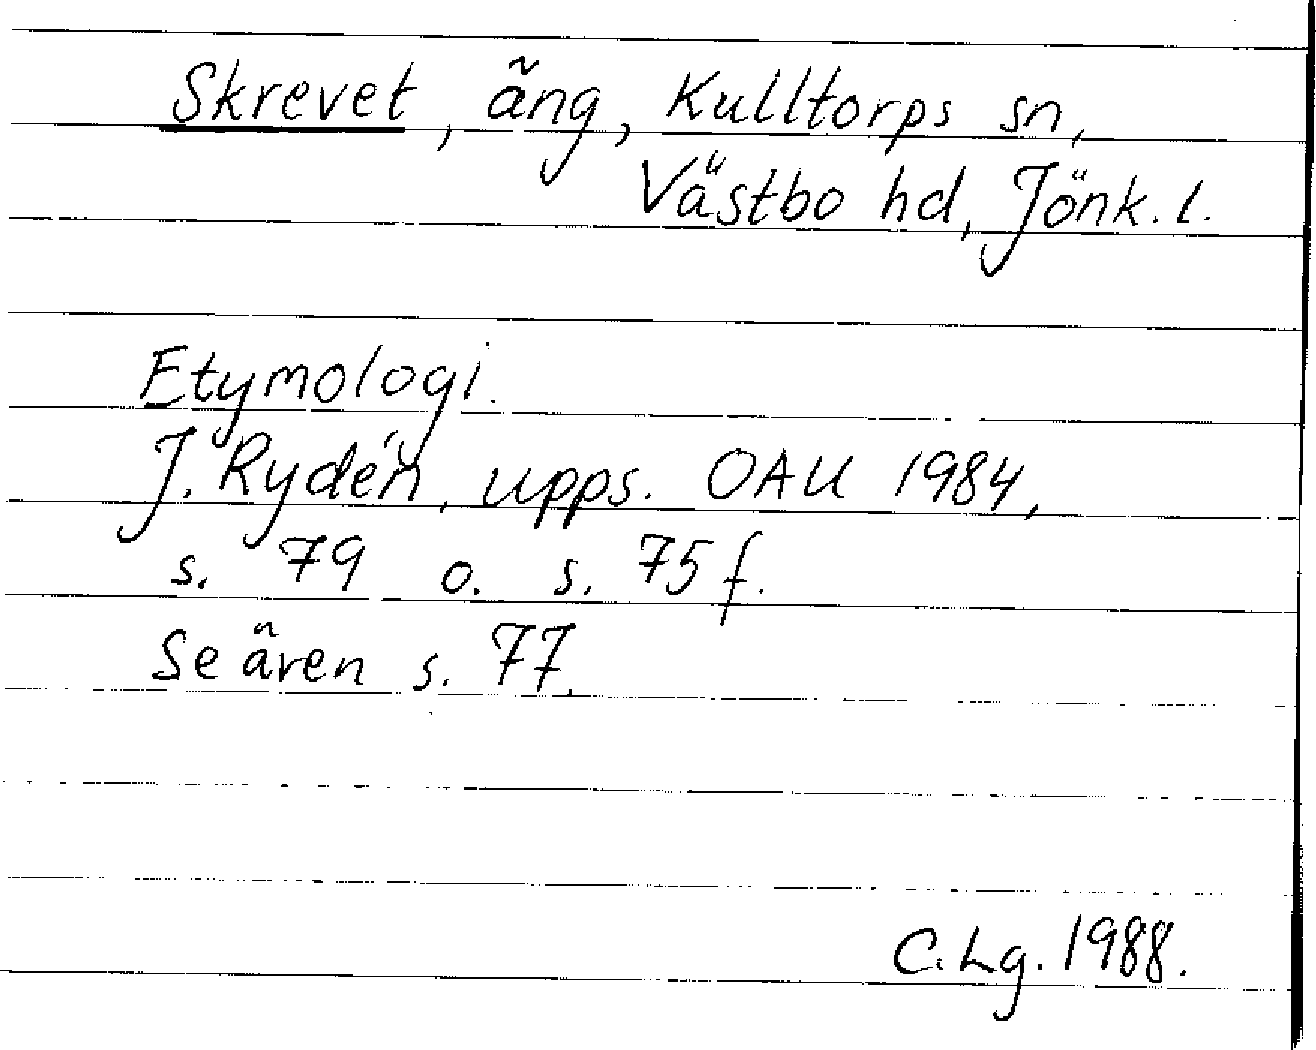 Skrevet, äng, Kulltorps sn,
Västbo hd, Jönk. l.
Etymologi.
J. Rydén, upps. OAU 1984,
s. 79 o. s. 75 f.
Se även s. 77.
C. Lg. 1988.